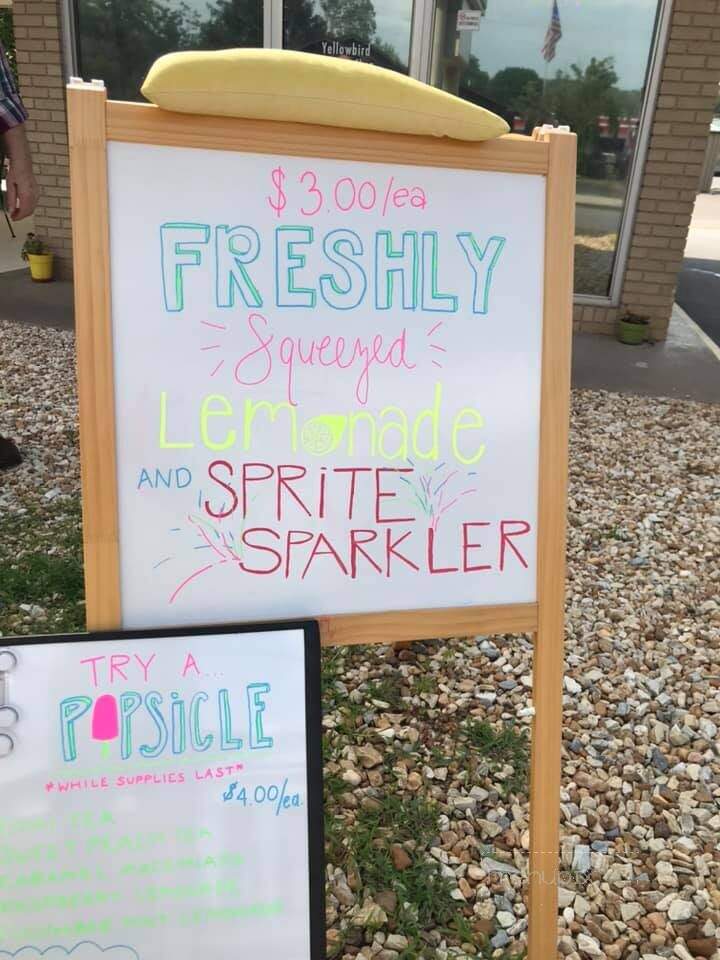 Yellowbird
$3.00/ea
FRESHLY
Squeezed
Lemonade
AND SPRiTE
SPARKLER
TRY A...
POPSiCLE
*WHILE SUPPLIES LAST*
$4.00/ea.
TEA
SWEET PEACH TEA
CARAMEL MACCHIATO
RASPBERRY LEMONADE
CUCUMBER MINT LEMONADE